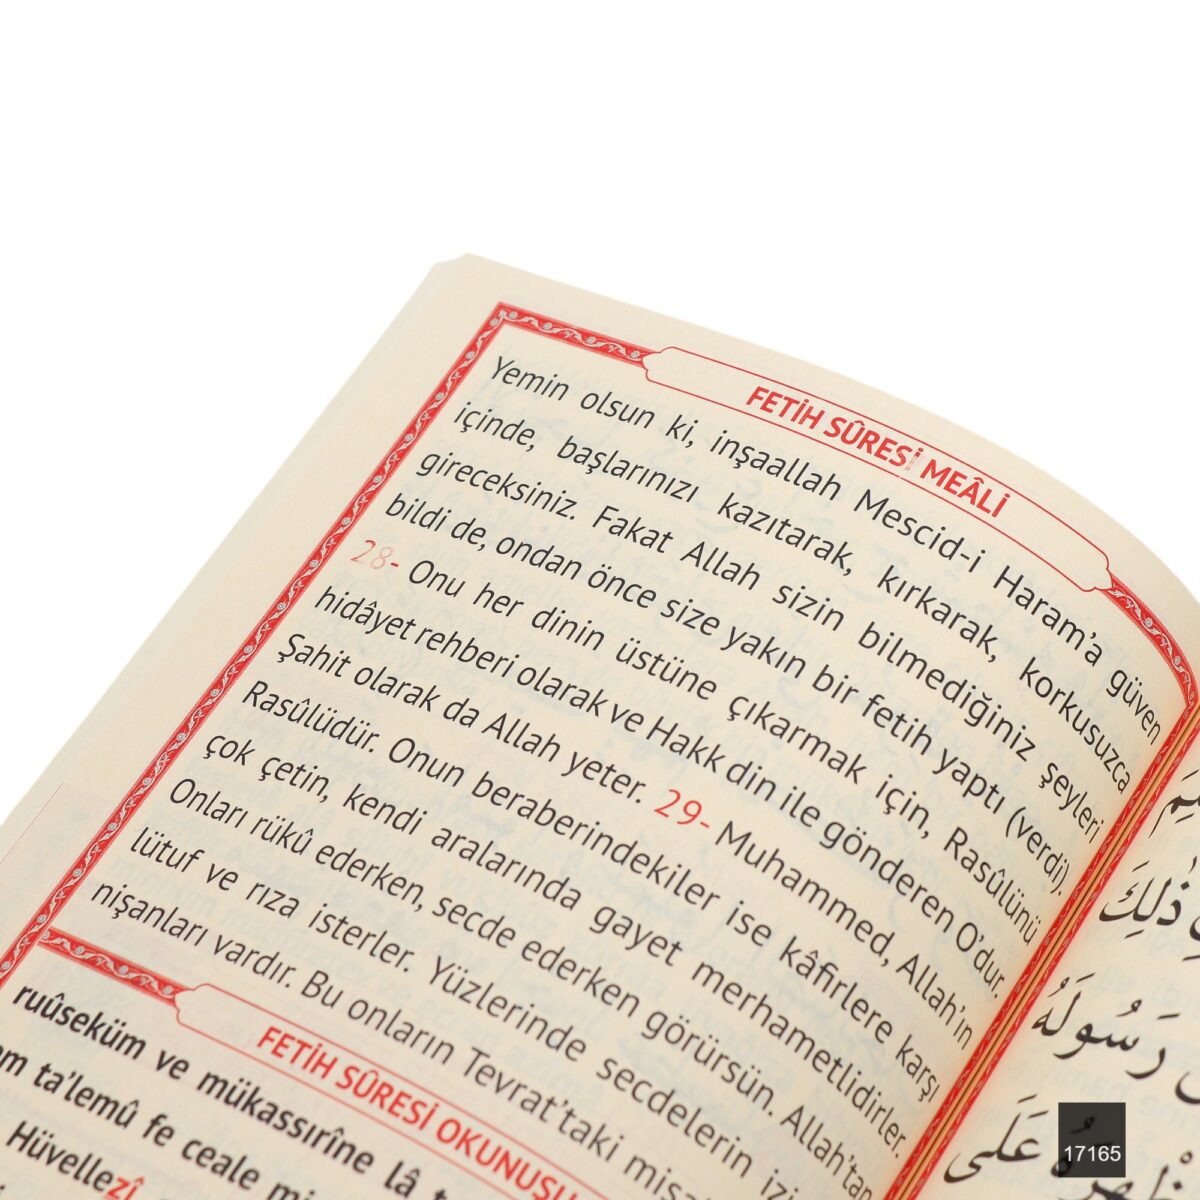 FETİH SÛRESİ MEÂLİ
Yemin olsun ki, inşaallah Mescid-i Haram'a güven
içinde, başlarınızı kazıtarak, kırkarak, korkusuzca
gireceksiniz. Fakat Allah sizin bilmediğiniz şeyleri
bildi de, ondan önce size yakın bir fetih yaptı (verdi).
28- Onu her dinin üstüne çıkarmak için, Rasûlünü
hidâyet rehberi olarak ve Hakk din ile gönderen O'dur.
Şahit olarak da Allah yeter. 29- Muhammed, Allah'ın
Rasûlüdür. Onun beraberindekiler ise kâfirlere karşı
çok çetin, kendi aralarında gayet merhametlidirler.
Onları rükû ederken, secde ederken görürsün. Allah'tan
lütuf ve rıza isterler. Yüzlerinde secdelerin izi
nişanları vardır. Bu onların Tevrat'taki
FETİH SÛRESİ OKUNUŞU
ruûseküm ve mükassırîne lâ
ta'lemû fe ceale
Hüvellezî
ذَلِكَ
رَسُولَهُ
عَلَى
17165